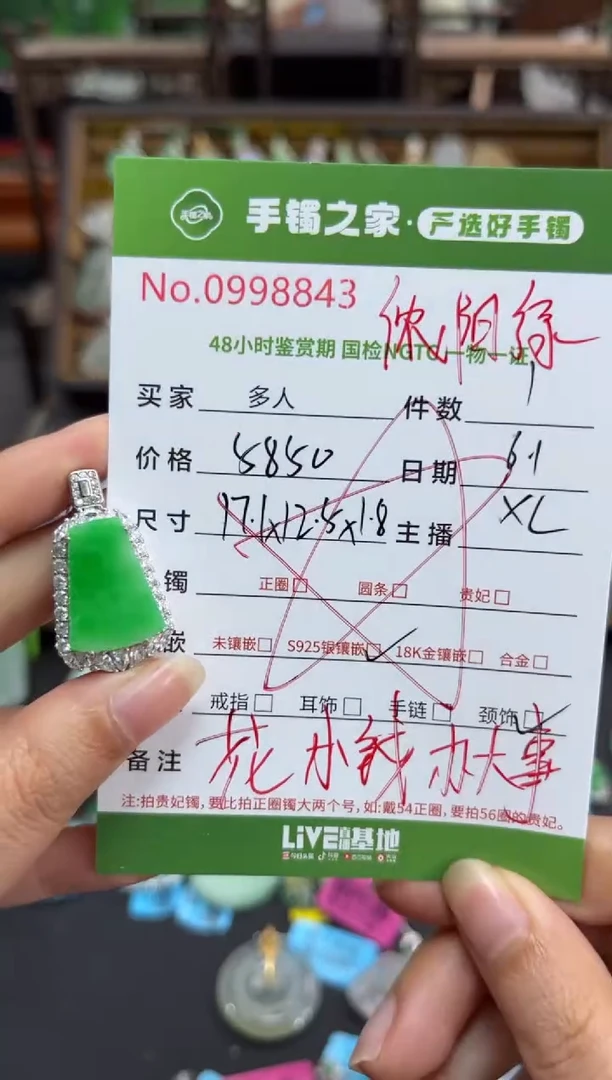 手镯之家·严选好手镯
No.0998843
浓阳绿
48小时鉴赏期 国检NGTC 一物一证
买家 多人 件数 1
价格 5850 日期 6.1
尺寸 17.1x12.5x1.8 主播 XL
镯 正圈 圆条 贵妃
嵌 未镶嵌 S925银镶嵌 18K金镶嵌 合金
戒指 耳饰 手链 颈饰
备注 花小钱办大事
注:拍贵妃镯,要比拍正圈镯大两个号,如:戴54正圈,要拍56圈的贵妃。
LiVE直播基地